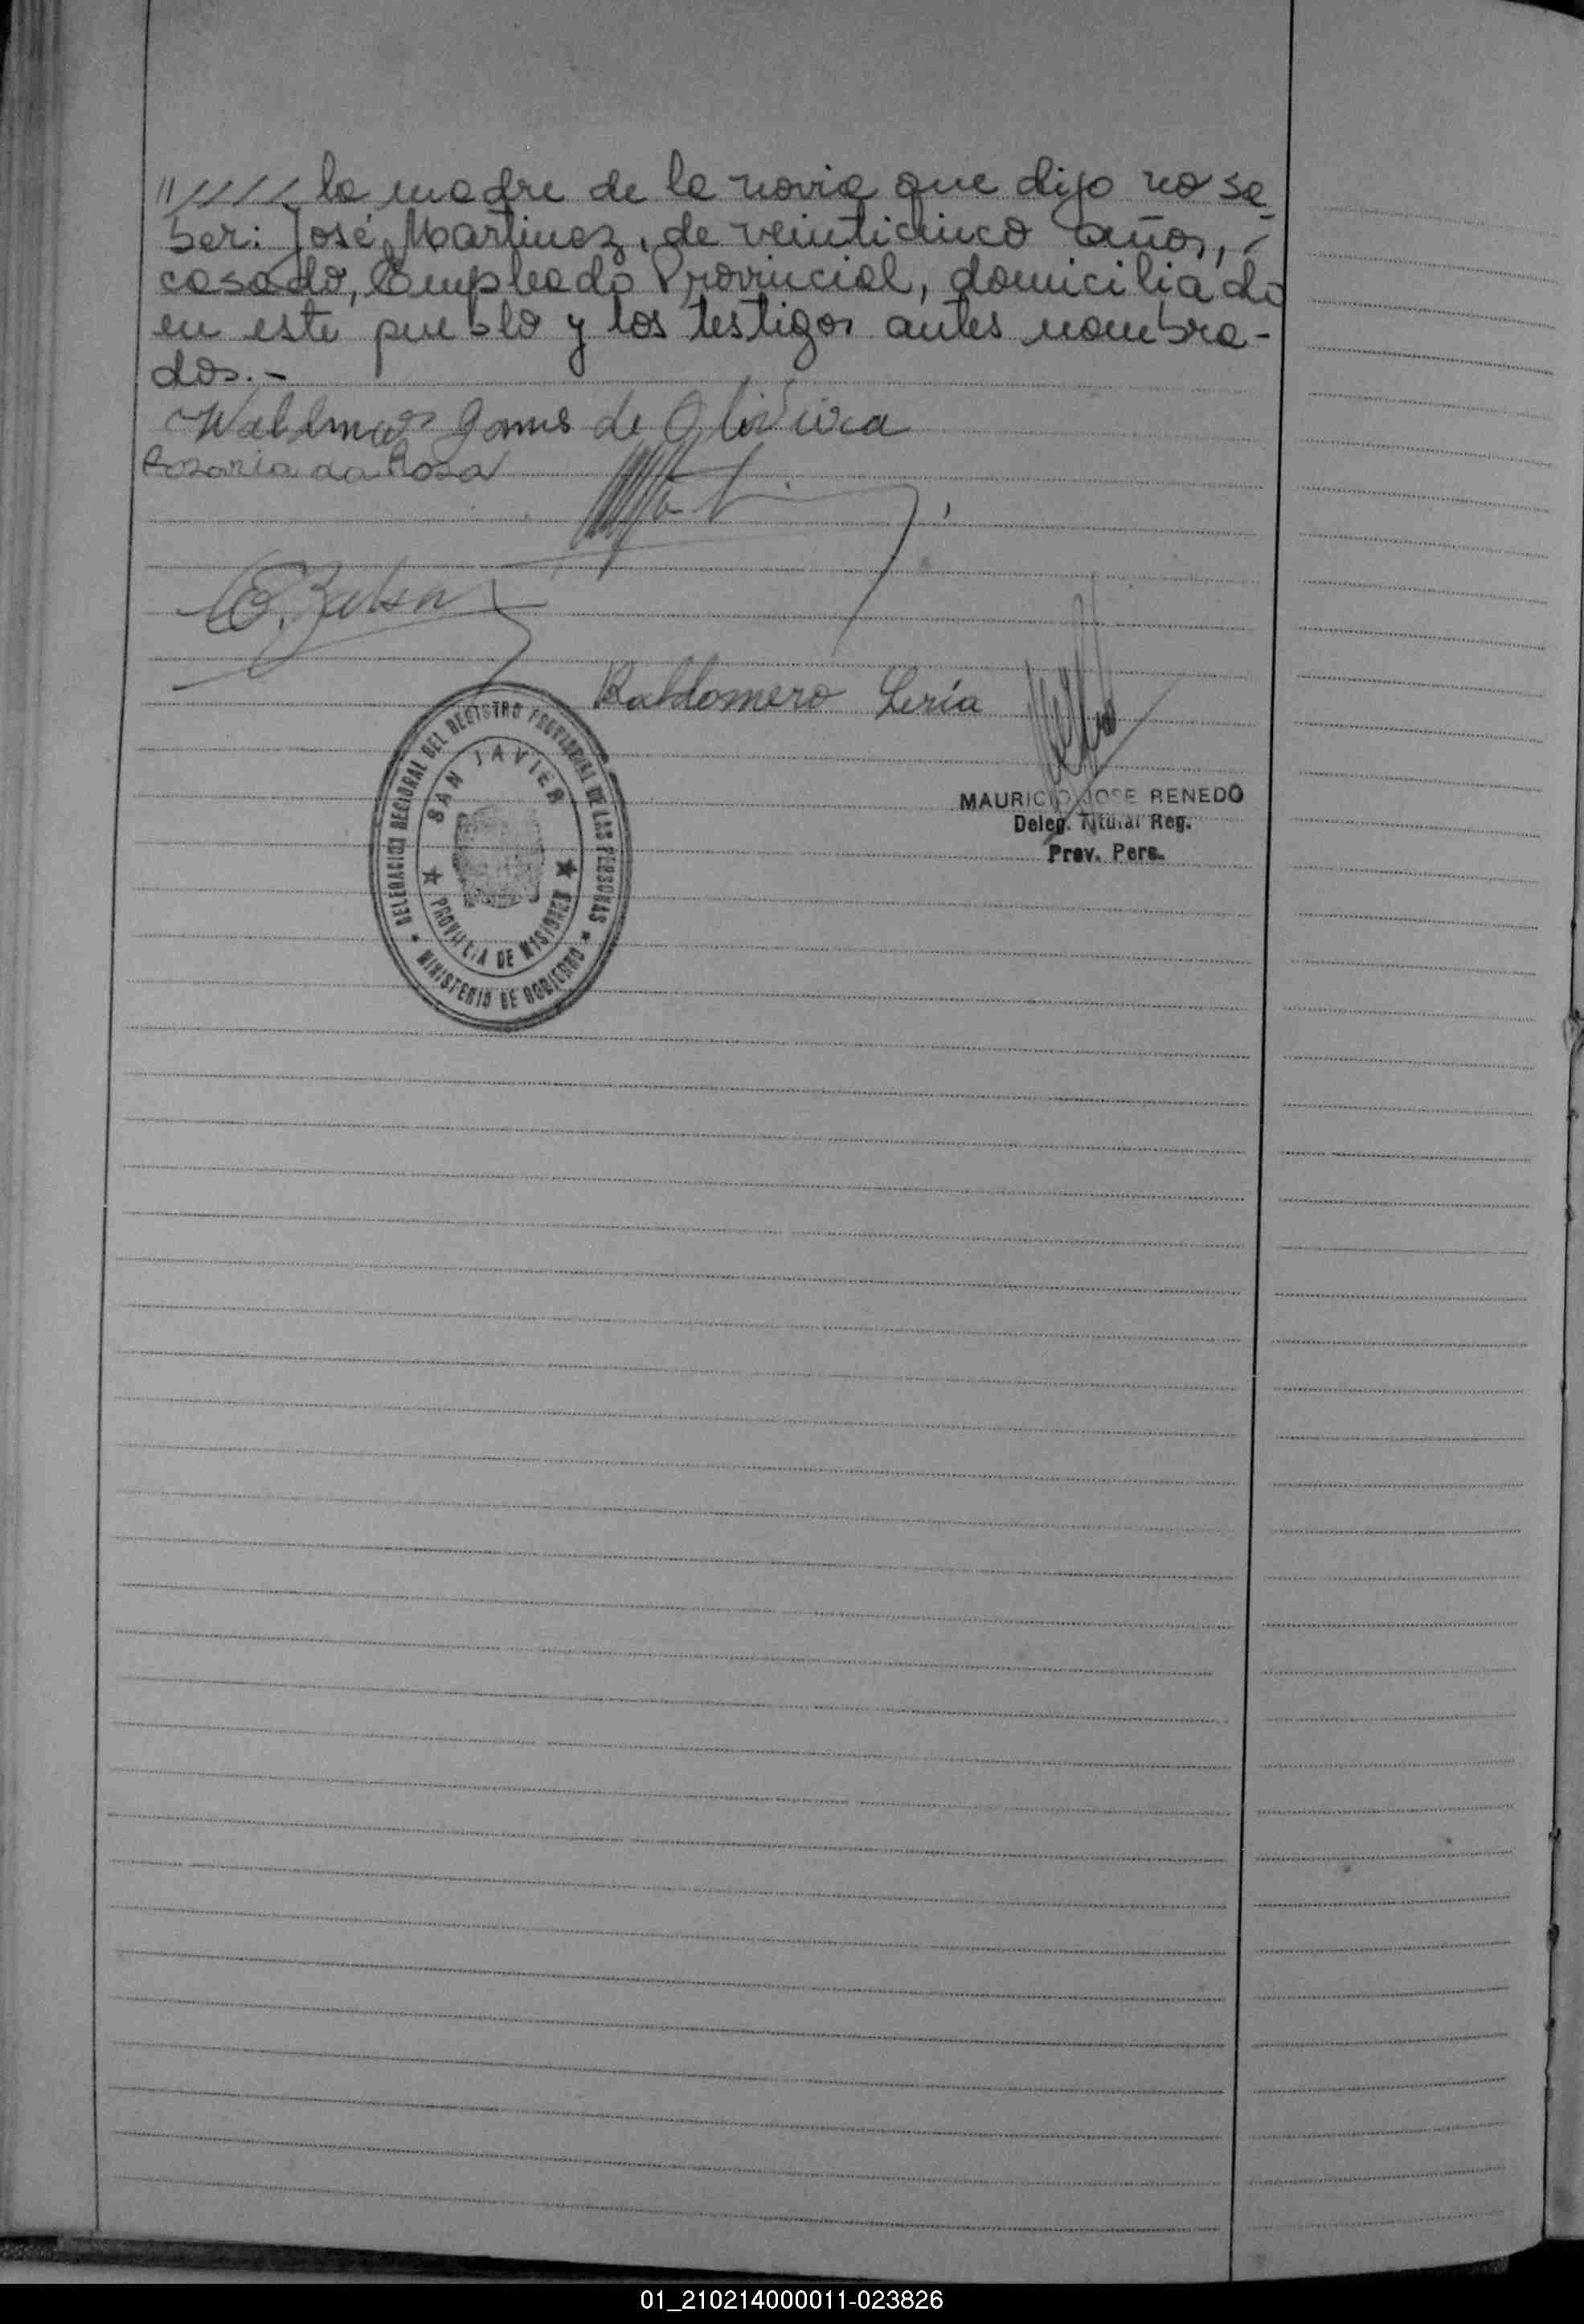 11///// la madre de la novia que dijo no sa
ber: José Martinez, de veinticinco años, -
casado, Empleado Provincial, domiciliado
en este pueblo y los testigos antes nombra-
dos.-
Waldmar Gomes de Oliveira
Rosaria da Rosa
Baldomero Leria
DELEGACION REGIONAL DEL REGISTRO PROVINCIAL DE LAS PERSONAS
SAN JAVIER
PROVINCIA DE MISIONES
MINISTERIO DE GOBIERNO
MAURICIO JOSE RENEDO
Deleg. Titular Reg.
Prov. Pers.
01_210214000011-023826